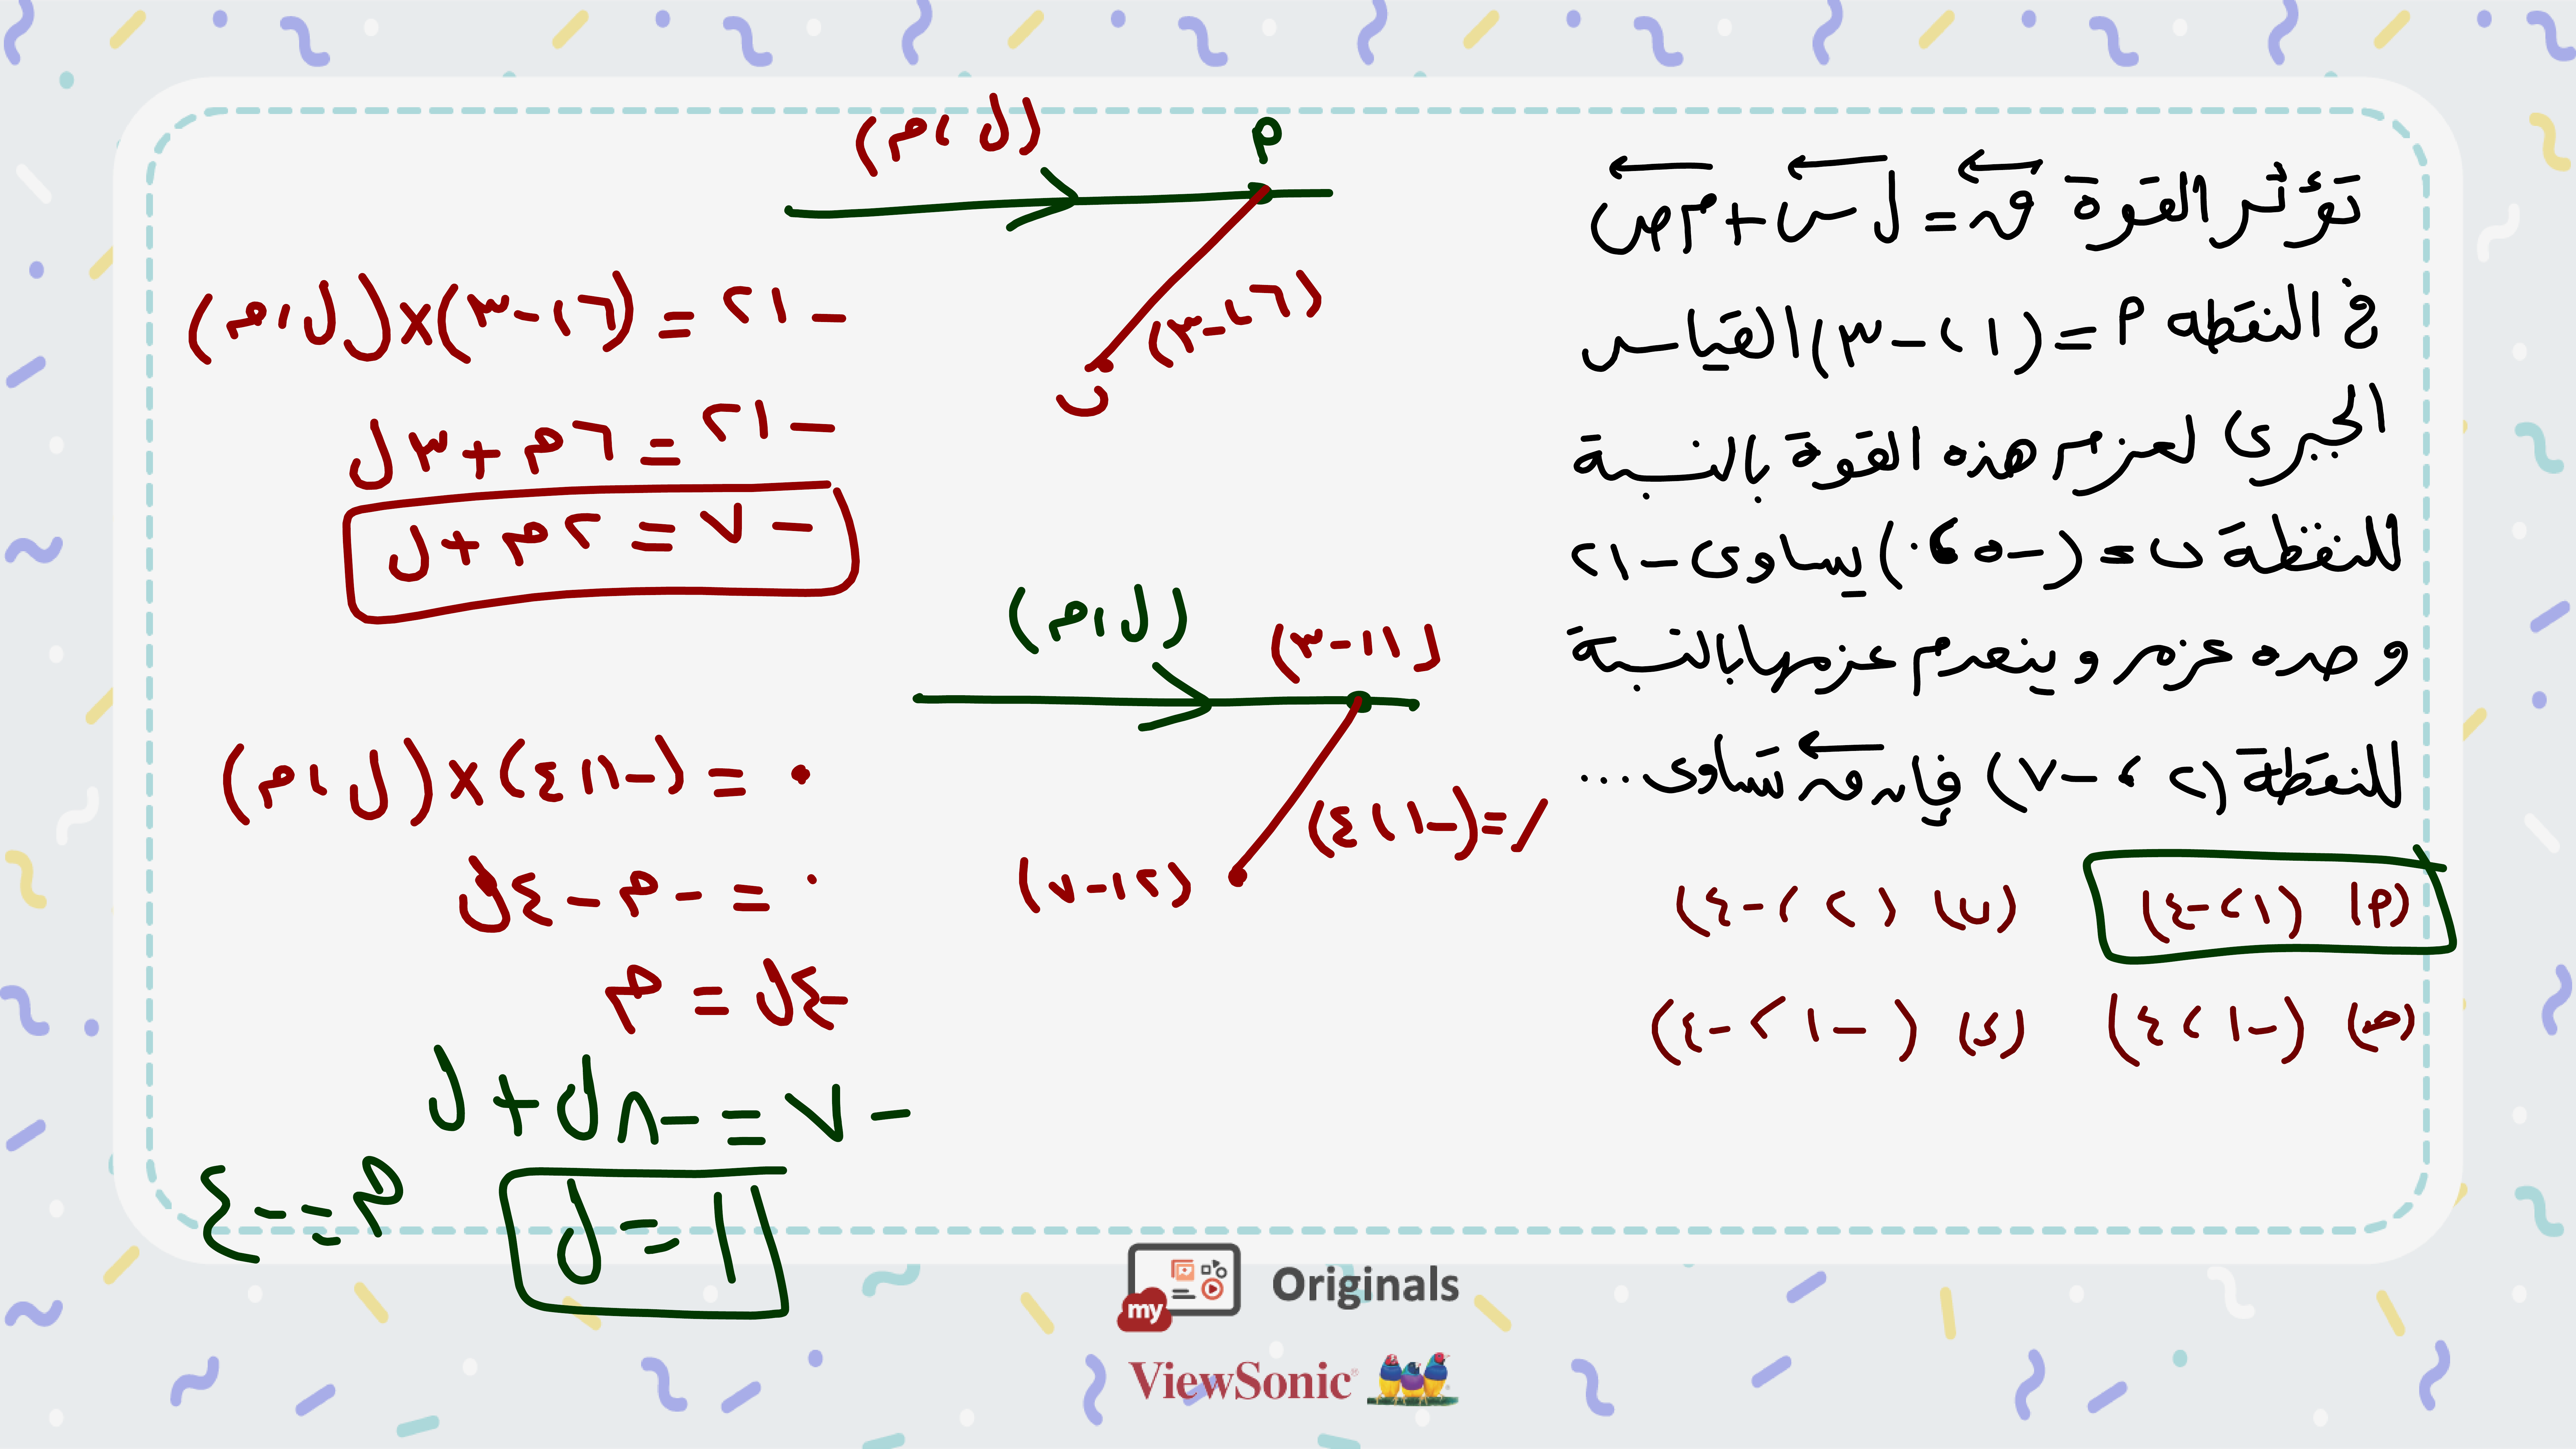 تؤثر القوة ق = ل س + م ص
في النقطه م = (١ ، -٣) القياس
الجبرى لعزم هذه القوة بالنسبة
للنقطة ں = (-٥ ، ٠) يساوى -٢١
وحده عزم وينعدم عزمها بالنسبة
للنقطة (٢ ، -٧) فإن ق تساوى ...
(م) (١ ، -٤) (ں) (٢ ، -٤)
(حـ) (-١ ، ٤) (د) (-١ ، -٤)
(ل ، م)
م
(٦ ، -٣)
ں
-٢١ = (٦ ، -٣) × (ل ، م)
-٢١ = ٦م + ٣ل
-٧ = ٢م + ل
(ل ، م)
(١ ، -٣)
ر = (-١ ، ٤)
(٢ ، -٧)
٠ = (-١ ، ٤) × (ل ، م)
٠ = -م - ٤ل
-٤ل = م
-٧ = -٨ل + ل
ل = ١
م = -٤
my Originals
ViewSonic